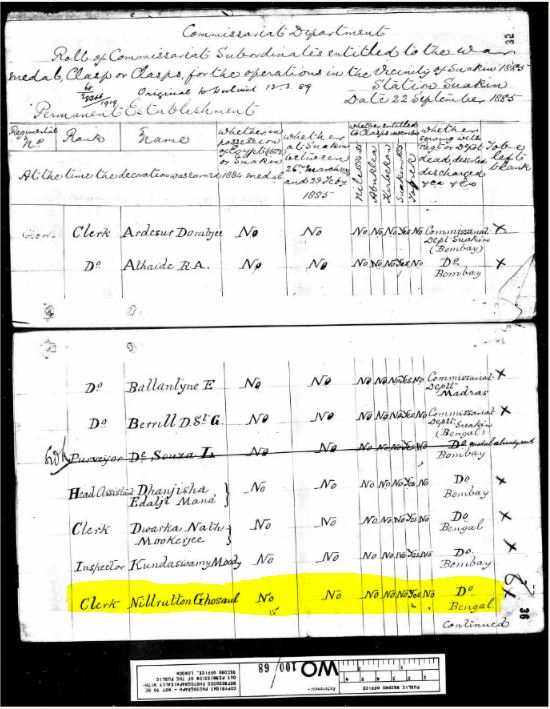 Commissariat Department
Roll of Commissariat Subordinates entitled to the War
medal, Clasp or Clasps, for the operations in the Vicinity of Suakin 1885
Original to Woolwich 12.3.89 Station Suakin
Date 22 September 1885
Permanent Establishment
32
Regimental No Rank Name Whether in possession of Egypt 1882 or Suakin 1884 medal Whether at Suakin between 26th March and 1885 Whether entitled to Clasps inscribed Whether serving with Regt or Dept dead, deserted discharged &ca &ca To be left blank
At the time the decoration was earned
Nile 1884-85 Abuklea Kirbekan Suakin 1885 Tofrek
Clerk Ardesur Dorabjee No No No No No Yes No Commissariat Dept Suakin (Bombay) X
Do Alhaide R.A. No No No No No Yes No Do Bombay X
Do Ballantyne E No No No No No Yes No Commissariat Deptt Madras X
Do Berrill D. St G. No No No No No Yes No Commissariat Deptt Suakin (Bengal) X
Purveyor De Souza L No No No No No Yes No Do medal already sent Bombay
Head Assistant Dhanjisha Edalji Mana No No No No No Yes No Do Bombay X
Clerk Dwarka Nath Mookerjee No No No No No Yes No Do Bengal X
Inspector Kundaswamy Moody No No No No No Yes No Do Bombay X
Clerk Nillrutton Ghosaul No No No No No Yes No Do Bengal X
36
Continued
COPYRIGHT PHOTOGRAPH - NOT TO BE
REPRODUCED PHOTOGRAPHICALLY WITH-
OUT PERMISSION OF THE PUBLIC
RECORD OFFICE, LONDON
Reference:-
WO 100/68
PUBLIC RECORD OFFICE